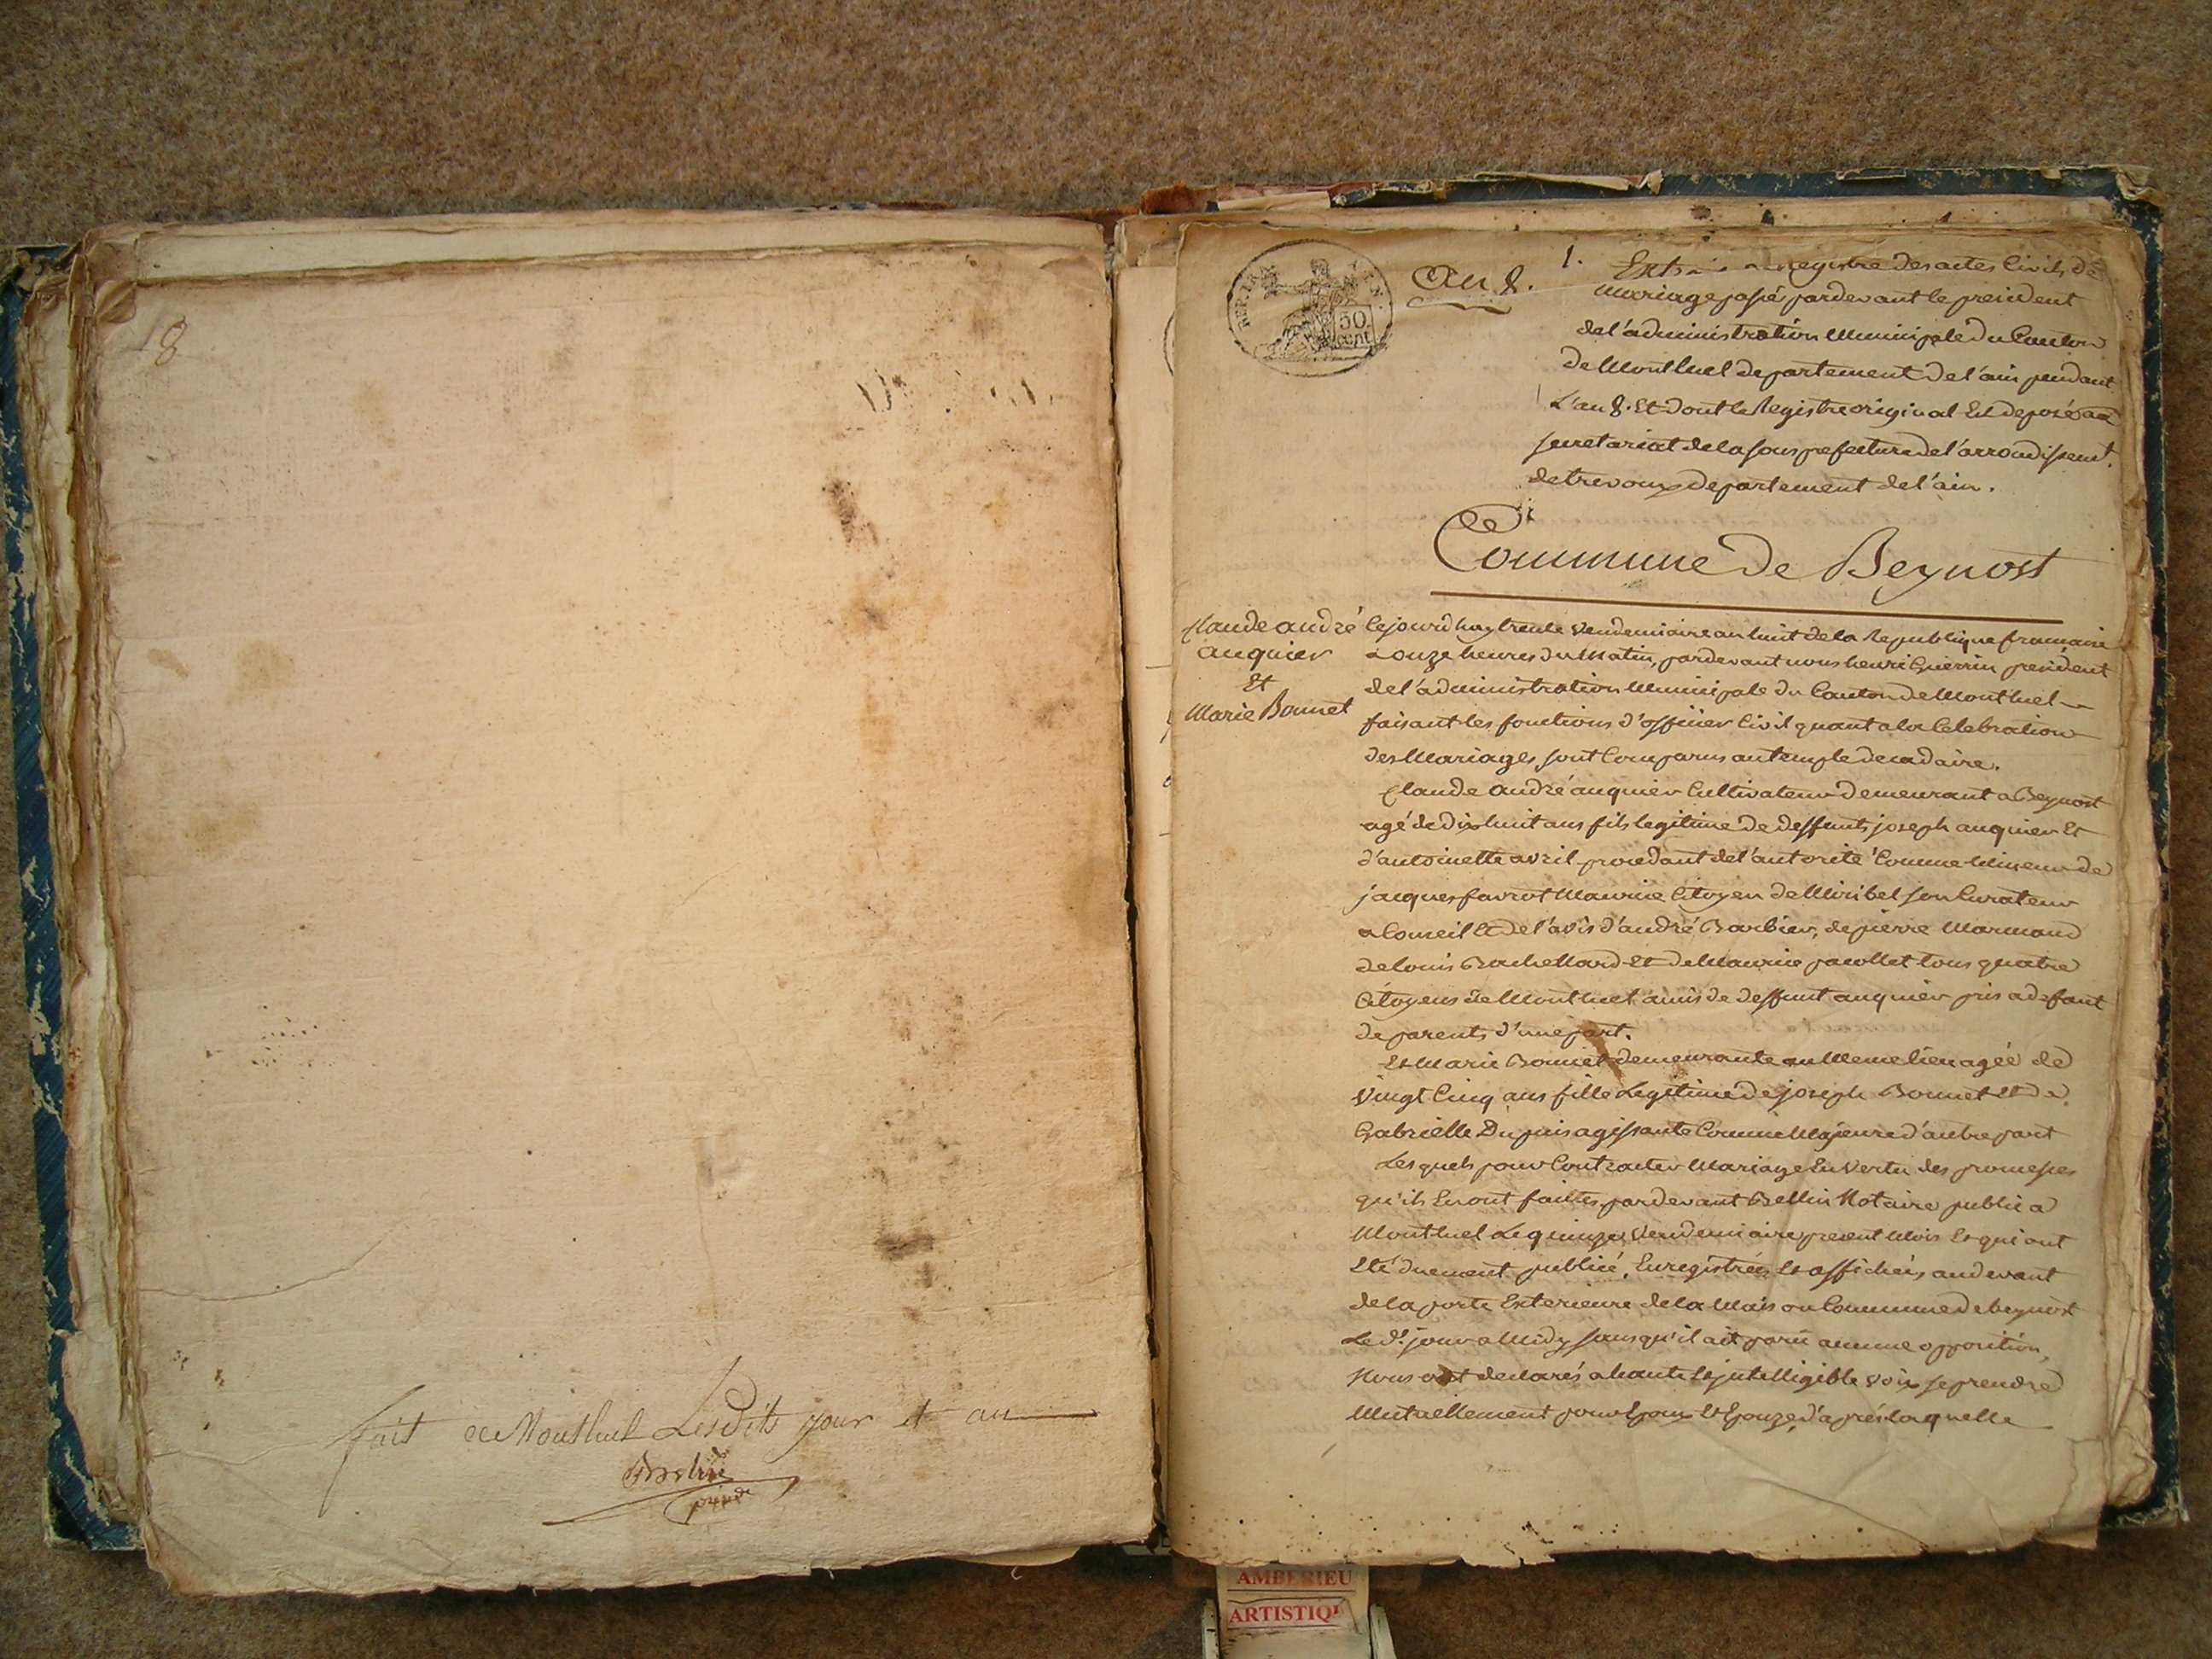 18
fait à Montluel Lesdits jour et an
REP. FRA.
50
cent
An 8.
1.
Extrait du registre des actes Civils de
Mariage passé pardevant le president
de l'administration Municipale du Canton
de Montluel departement de l'ain pendant
L'an 8. Et dont le Registre original Est deposé au
secretariat de la sous prefecture de l'arrondissemt.
de trevoux departement de l'ain.
Commune de Beynost
Claude andré
auquier
Et
Marie Bonnet
Cejourd'huy trente vendemiaire an huit de la Republique francaise
a onze heures du Matin, pardevant nous henri Guerrin president
de l'administration Municipale du Canton de Montluel
faisant les fonctions d'officier Civil quant a la Celebration
des Mariages, sont Comparus au temple decadaire.
Claude André auquier Cultivateur demeurant a Beynost
agé de dix huit ans fils legitime de deffunts joseph auquier Et
d'antoinette avril procedant de l'autorité Comme Mineur de
jacques favrot Maurice Citoyen de Miribel son Curateur
a Conseil Et de l'avis d'andré Barbier, de pierre Marmand
de louis Bachellard Et de Maurice jacollet tous quatre
Citoyens de Montluel amis de deffunt auquier pris a defaut
de parents d'une part.
Et Marie Bonnet demeurante au Meme lieu agée de
vingt Cinq ans fille Legitime de joseph Bonnet Et de
Gabrielle Dupuis agissante Comme Majeure d'autre part
Lesquels pour Contracter Mariage En vertu des promesses
qu'ils En ont faites pardevant Bellin Notaire public a
Montluel Le quinze vendemiaire present Mois Et qui ont
Eté duement publié, Enregistrées Et affichées au devant
de la porte Exterieure de la Maison Commune de beynost
Le dt. jour a Midy sans qu'il ait paru aucune opposition,
Nous ont declarés a haute Et jntelligible voix se prendre
Mutuellement pour Epoux Et Epouze, d'après laquelle
AMBERIEU
ARTISTIQ